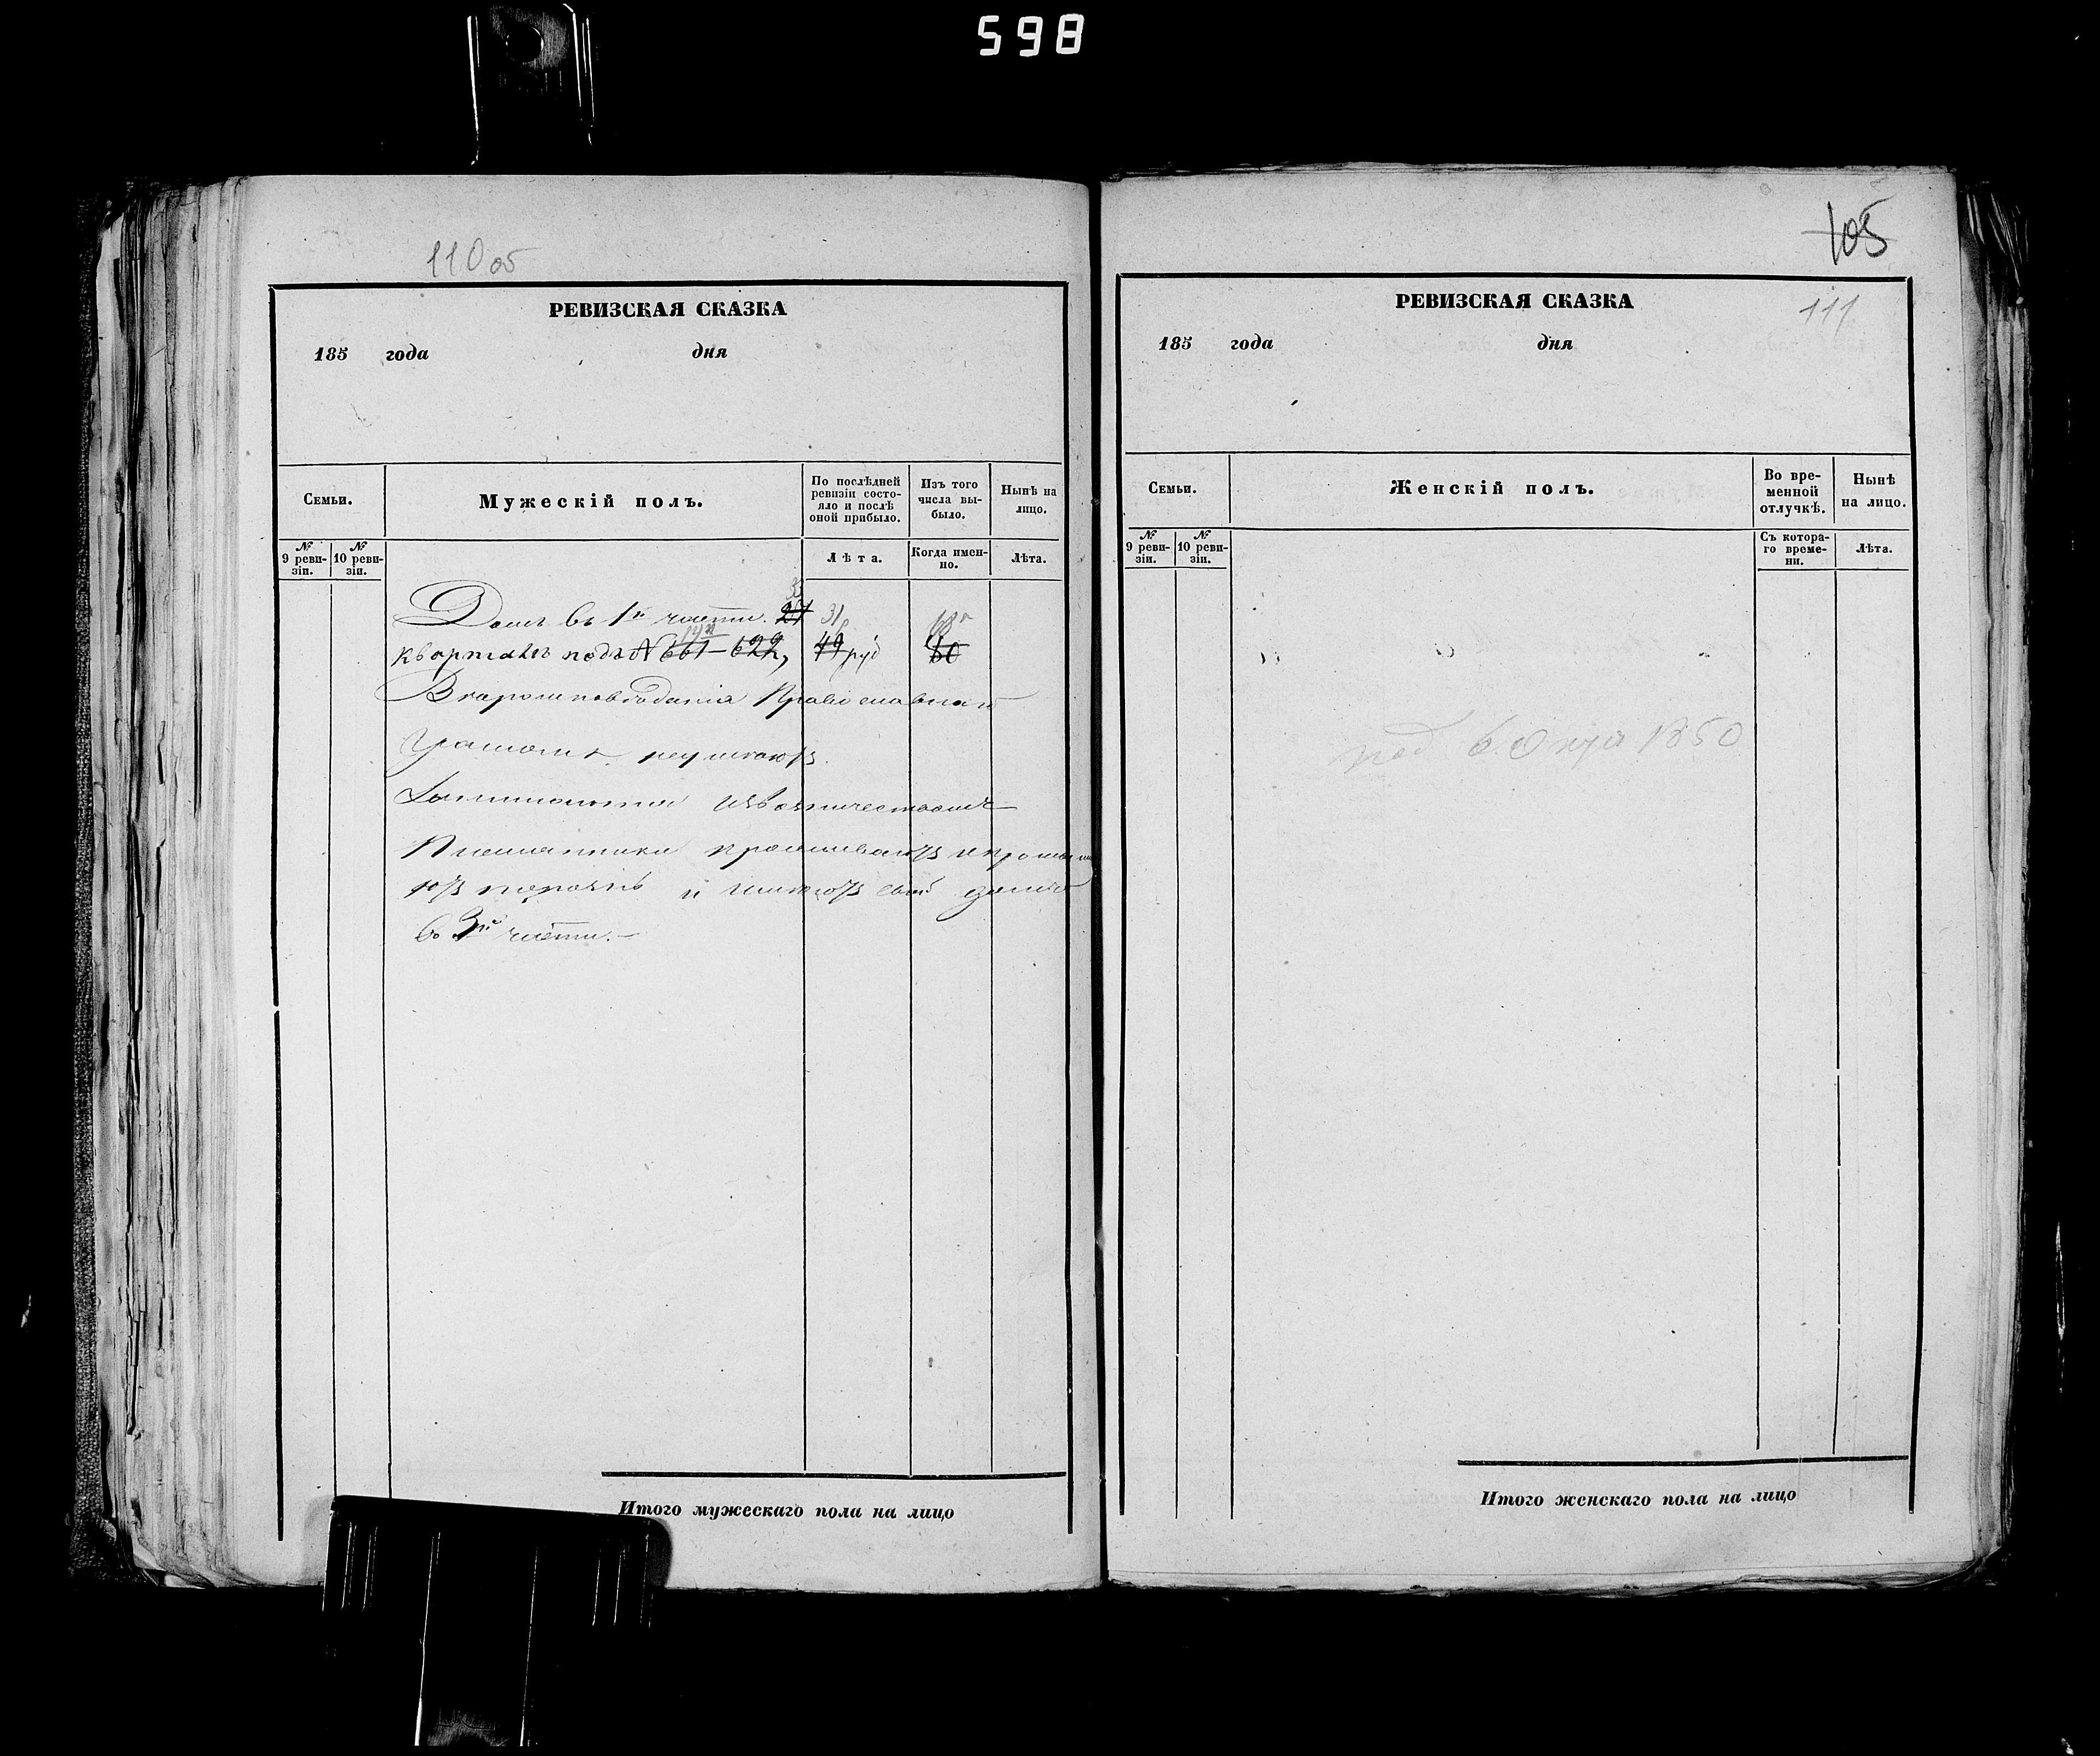 598
110 об
РЕВИЗСКАЯ СКАЗКА
185 года дня
Семьи.
Мужескій полъ.
По послѣдней ревизіи состояло и послѣ оной прибыло.
Изъ того числа выбыло.
Нынѣ на лицо.
№ 9 ревизіи.
№ 10 ревизіи.
Лѣта.
Когда именно.
Лѣта.
Домъ въ 1й части. 21 31
кварталъ подъ № 661–622, 49 руб 60
Вѣроисповѣданія Православнаго
Грамоти
Занимаются извозничествомъ
Племянники проживаютъ
и имѣютъ свой домъ
въ 3й части.–
Итого мужескаго пола на лицо
105
111
РЕВИЗСКАЯ СКАЗКА
185 года дня
Семьи.
Женскій полъ.
Во временной отлучкѣ.
Нынѣ на лицо.
№ 9 ревизіи.
№ 10 ревизіи.
Съ котораго времени.
Лѣта.
6 1850
Итого женскаго пола на лицо